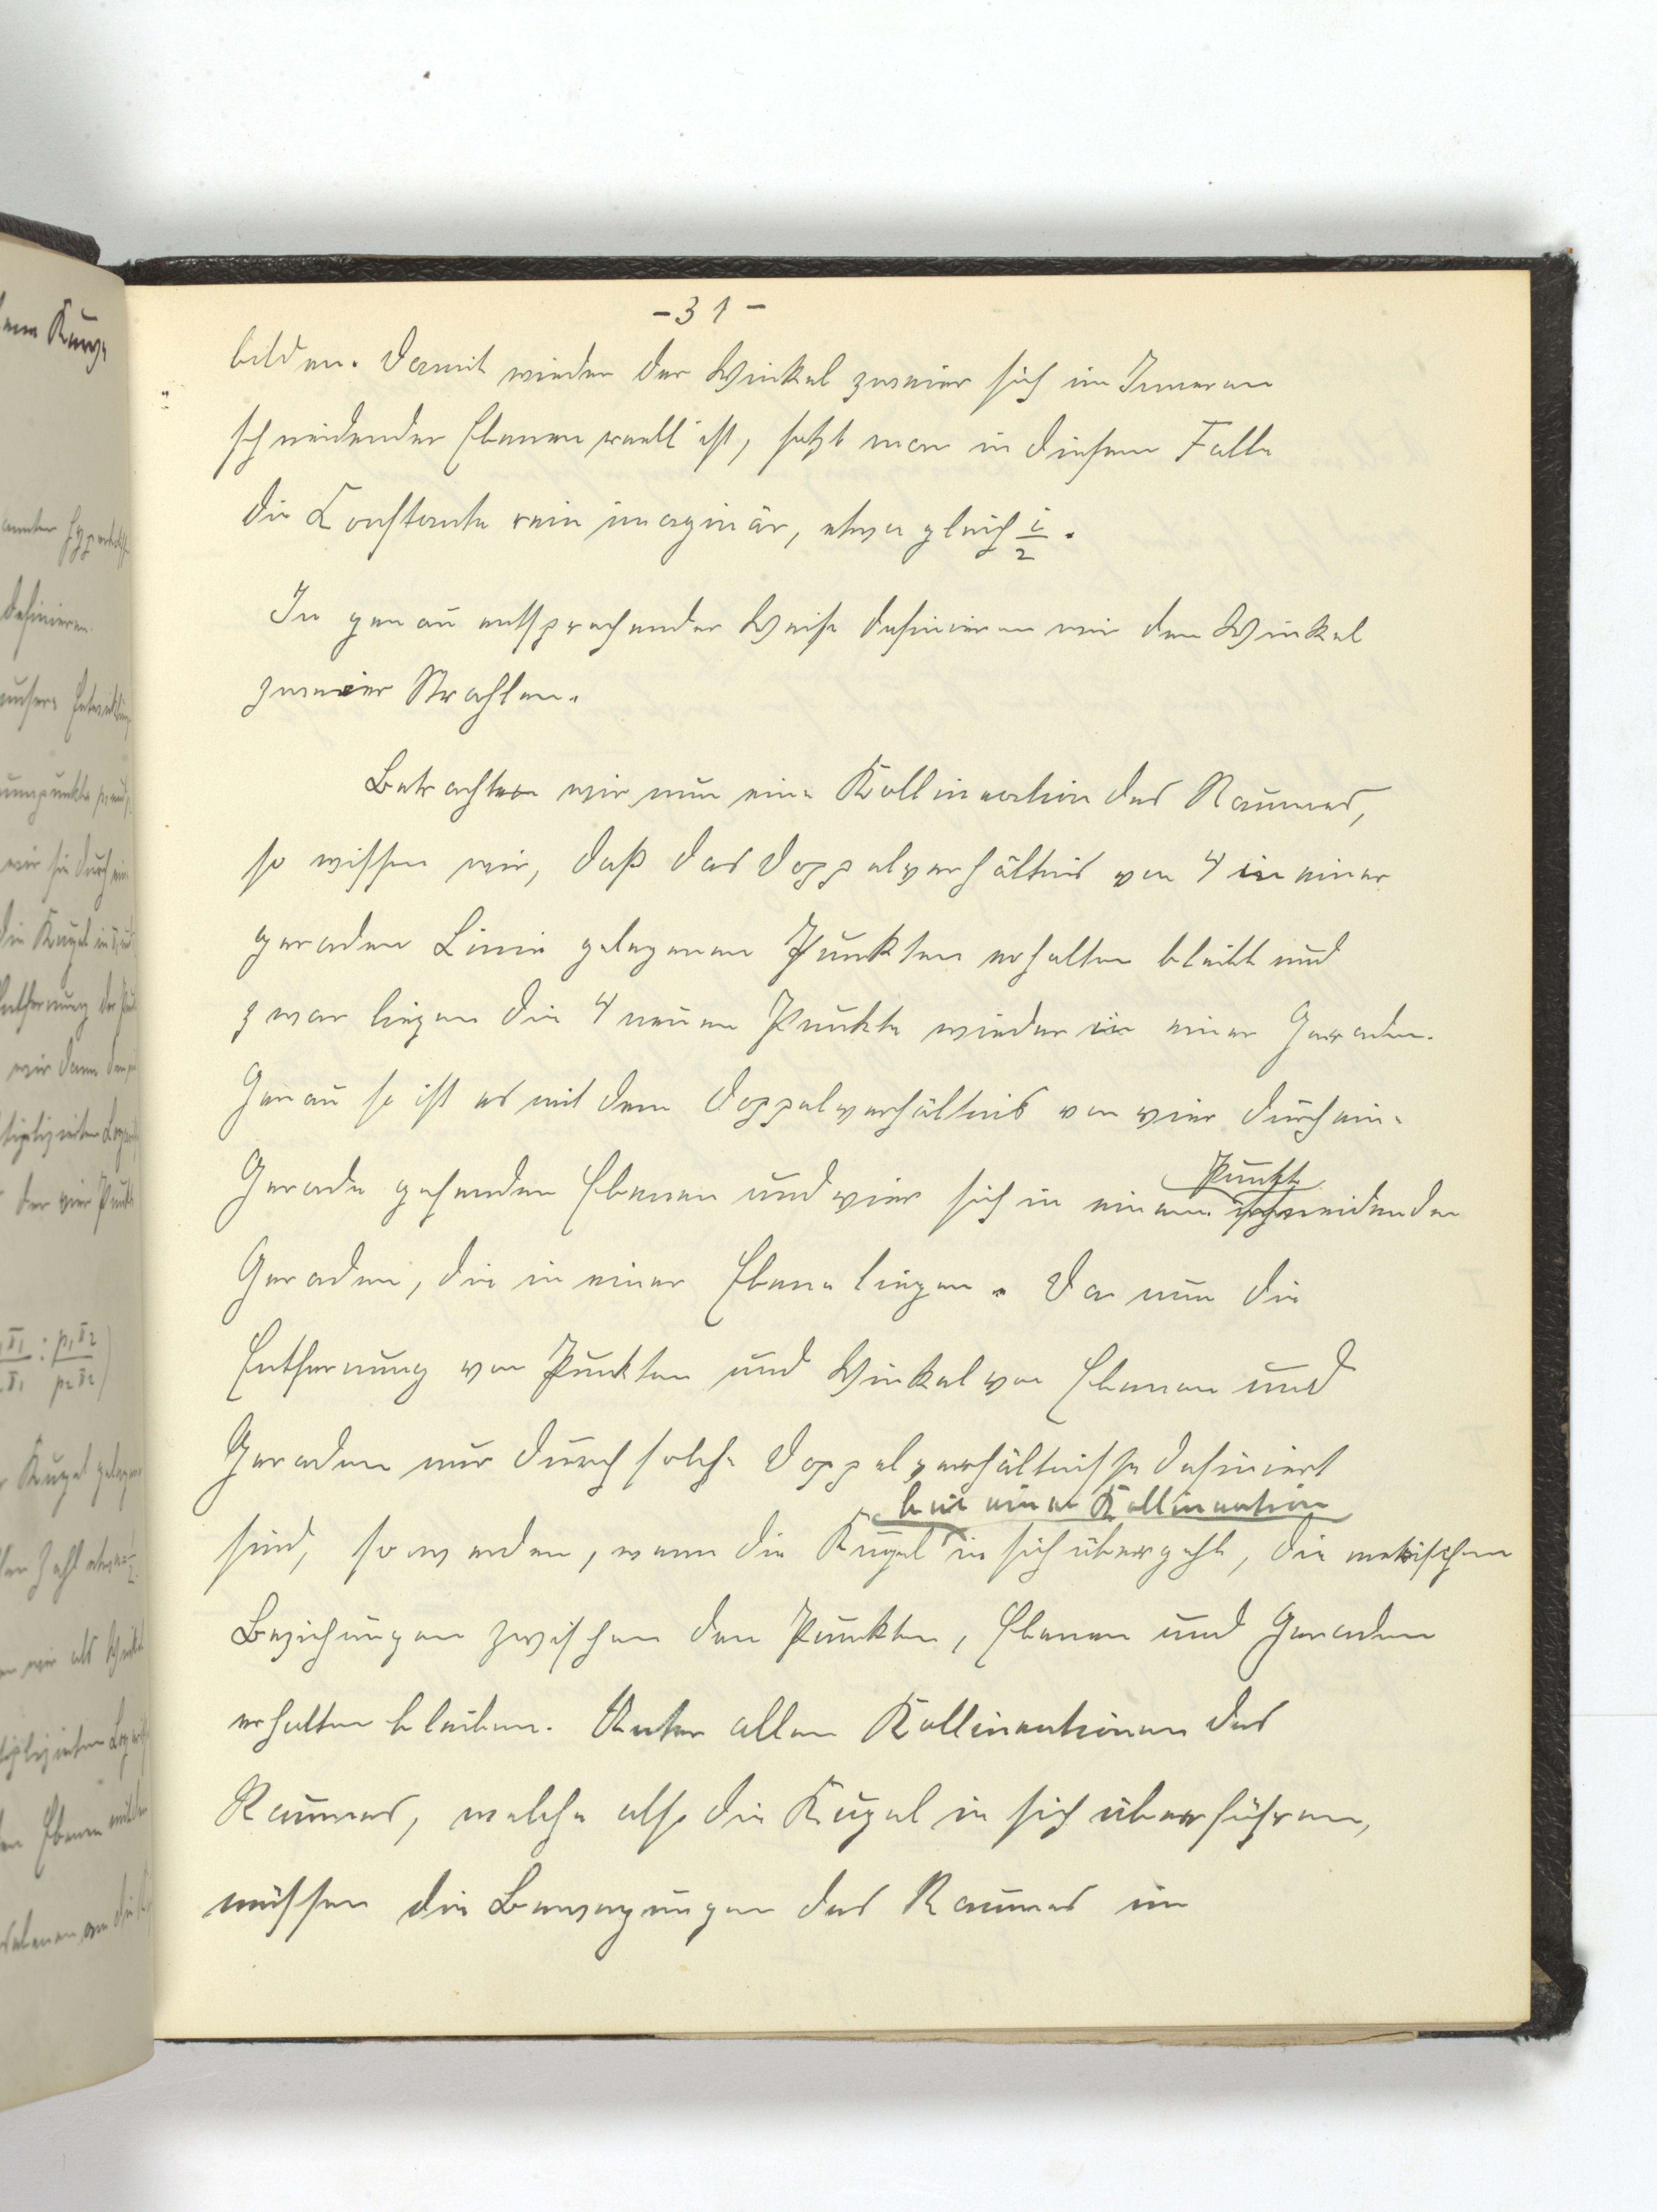 -31-
bilden. Damit wieder der Winkel zweier sich im Inneren
schneidender Ebenen reell ist, setzt man in diesem Falle
die Constante rein imaginär, etwa gleich i/2.
In genau entsprechender Weise definieren wir den Winkel
zweier Strahlen.
Betrachten wir nun eine Kollineation des Raumes,
so wissen wir, daß das Doppelverhältnis von 4 in einer
geraden Linie gelegenen Punkten erhalten bleibt und
zwar liegen die 4 neuen Punkte wieder in einer Geraden.
Genau so ist es mit dem Doppelverhältnis von vier durch eine
Gerade gehenden Ebenen und vier sich in einem Punkte schneidenden
Geraden, die in einer Ebene liegen. Da nun die
Entfernung von Punkten und Winkel von Ebenen und
Geraden nur durch solche Doppelverhältnisse definiert
sind, so werden, wenn die Kugel bei einer Kollineation in sich übergeht, die metrischen
Beziehungen zwischen den Punkten, Ebenen und Geraden
erhalten bleiben. Unter allen Kollineationen des
Raumes, welche also die Kugel in sich überführen,
müssen die Bewegungen des Raumes im